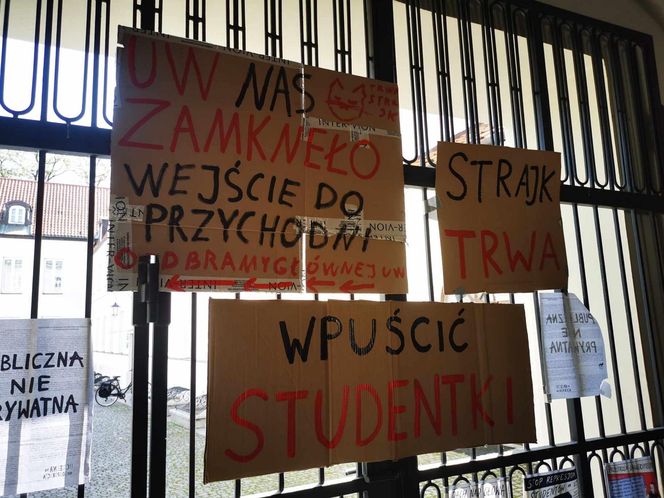 UW NAS
ZAMKNEŁO
WEJŚCIE DO
PRZYCHODNI
OD BRAMY GŁÓWNEJ UW
INTER-VION
STRAJK
TRWA
WPUŚCIĆ
STUDENTKI
PUBLICZNA
NIE
PRYWATNA
UBLICZNA
NIE
RYWATNA
STOP REPRESJOM